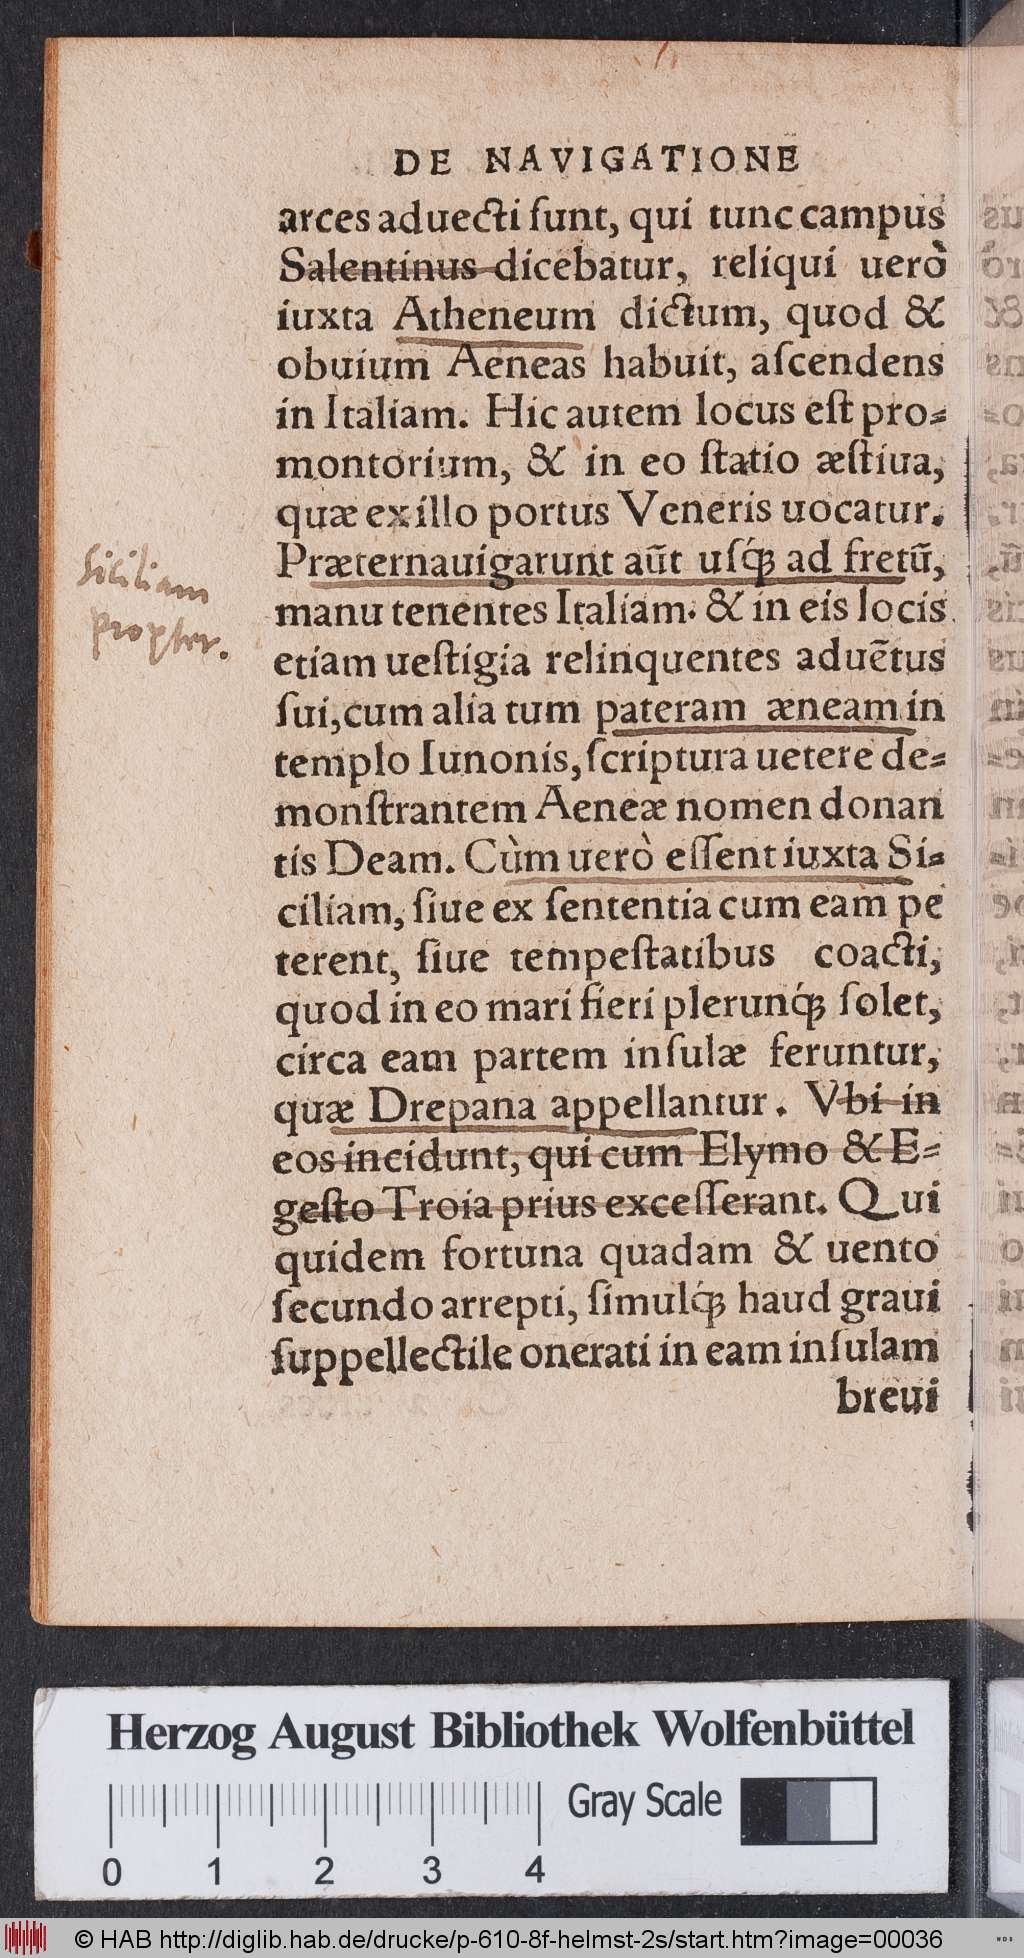 DE NAVIGATIONE
arces aduecti ſunt, qui tunc campus
Salentinus dicebatur, reliqui uerò
iuxta Atheneum dictum, quod &
obuium Aeneas habuit, aſcendens
in Italiam. Hic autem locus eſt pro⸗
montorium, & in eo ſtatio æſtiua,
quæ ex illo portus Veneris uocatur.
Præternauigarunt aūt uſq́ꝫ ad fretū,
Siciliam
manu tenentes Italiam. & in eis locis
propter.
etiam ueſtigia relinquentes aduētus
ſui, cum alia tum pateram æneam in
templo Iunonis, ſcriptura uetere de⸗
monſtrantem Aeneæ nomen donan
tis Deam. Cùm uerò eſſent iuxta Si⸗
ciliam, ſiue ex ſententia cum eam pe
terent, ſiue tempeſtatibus coacti,
quod in eo mari fieri plerunq́ꝫ ſolet,
circa eam partem inſulæ feruntur,
quæ Drepana appellantur. Vbi in
eos incidunt, qui cum Elymo & E⸗
geſto Troia prius exceſſerant. Qui
quidem fortuna quadam & uento
ſecundo arrepti, ſimulq́ꝫ haud graui
ſuppellectile onerati in eam inſulam
breui
Herzog August Bibliothek Wolfenbüttel
Gray Scale
0 1 2 3 4
© HAB http://diglib.hab.de/drucke/p-610-8f-helmst-2s/start.htm?image=00036